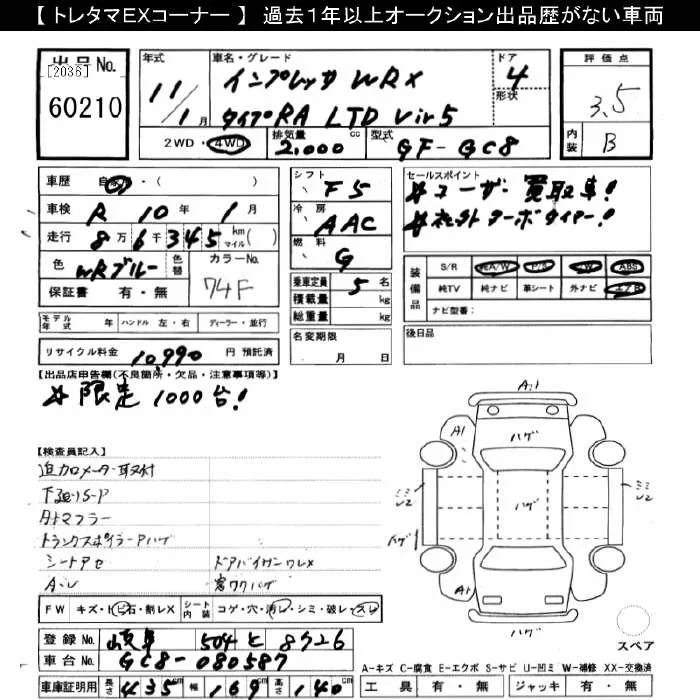 【 トレタマEXコーナー 】 過去１年以上オークション出品歴がない車両
出品No.
[2036]
60210
年式
11/1月
車名・グレード
インプレッサ WRX
タイプRA LTD Vir5
ドア
4
形状
評価点
3.5
内装
B
2WD・4WD
排気量
2,000 cc
型式
GF-GC8
車歴 自家・( )
車検 R 10年 1月
走行 8万6千345 km マイル( )
色 WRブルー 色替
カラーNo.
74F
保証書 有・無
シフト
F5
冷房
AAC
燃料
G
乗車定員 5 名
積載量 kg
総重量 kg
セールスポイント
#ユーザー買取車!
#社外ターボタイマー!
装備品
S/R 純A/W P/S PW ABS
純TV 純ナビ 革シート 外ナビ エアB
ナビ型番:
モデル年式 年 ハンドル 左・右 ディーラー・並行
名変期限
月 日
後日品
リサイクル料金 10,990 円 預託済
【出品店申告欄(不良箇所・欠品・注意事項等)】
#限定1000台!
【検査員記入】
追加メーター取付
下廻りS-P
外マフラー
トランクスポイラーAハゲ
シートアセ
ドアバイザンワレX
A・U
窓ワクハゲ
FW キズ・トビ石・割レX シート内装 コゲ・穴・汚レ・シミ・破レ・スレ
登録No. 岐阜 504 と 8726
車台No. GC8-080587
車庫証明用 長さ 435cm 幅 169cm 高さ 140cm
A1
A1
ハゲ
ミミU2
ハゲ
ミミU2
ハゲ
A1
ハゲ
A1
スペア
A-キズ C-腐食 E-エクボ S-サビ U-凹ミ W-補修 XX-交換済
工具 有・無 ジャッキ 有・無